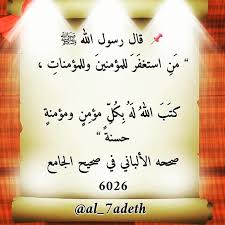 📌 قال رسول الله ﷺ
" مَنِ استغفَرَ للمؤمنينَ وللمؤمناتِ ،
كتَبَ اللهُ لَهُ بِكُلِّ مؤمِنٍ ومؤمنةٍ
حسنةً "
صححه الألباني في صحيح الجامع
6026
@al_7adeth